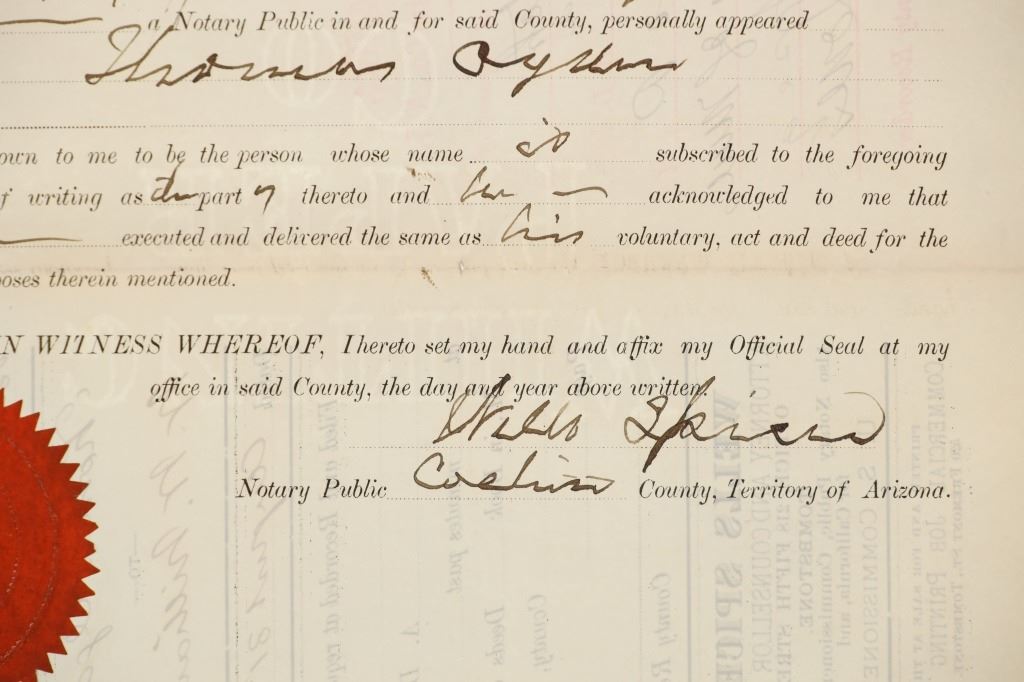 a Notary Public in and for said County, personally appeared
Thomas Ogden
own to me to be the person whose name is subscribed to the foregoing
f writing as the party thereto and he acknowledged to me that
executed and delivered the same as his voluntary, act and deed for the
poses therein mentioned.
IN WITNESS WHEREOF, I hereto set my hand and affix my Official Seal at my
office in said County, the day and year above written.
Wells Spicer
Notary Public Cochise County, Territory of Arizona.